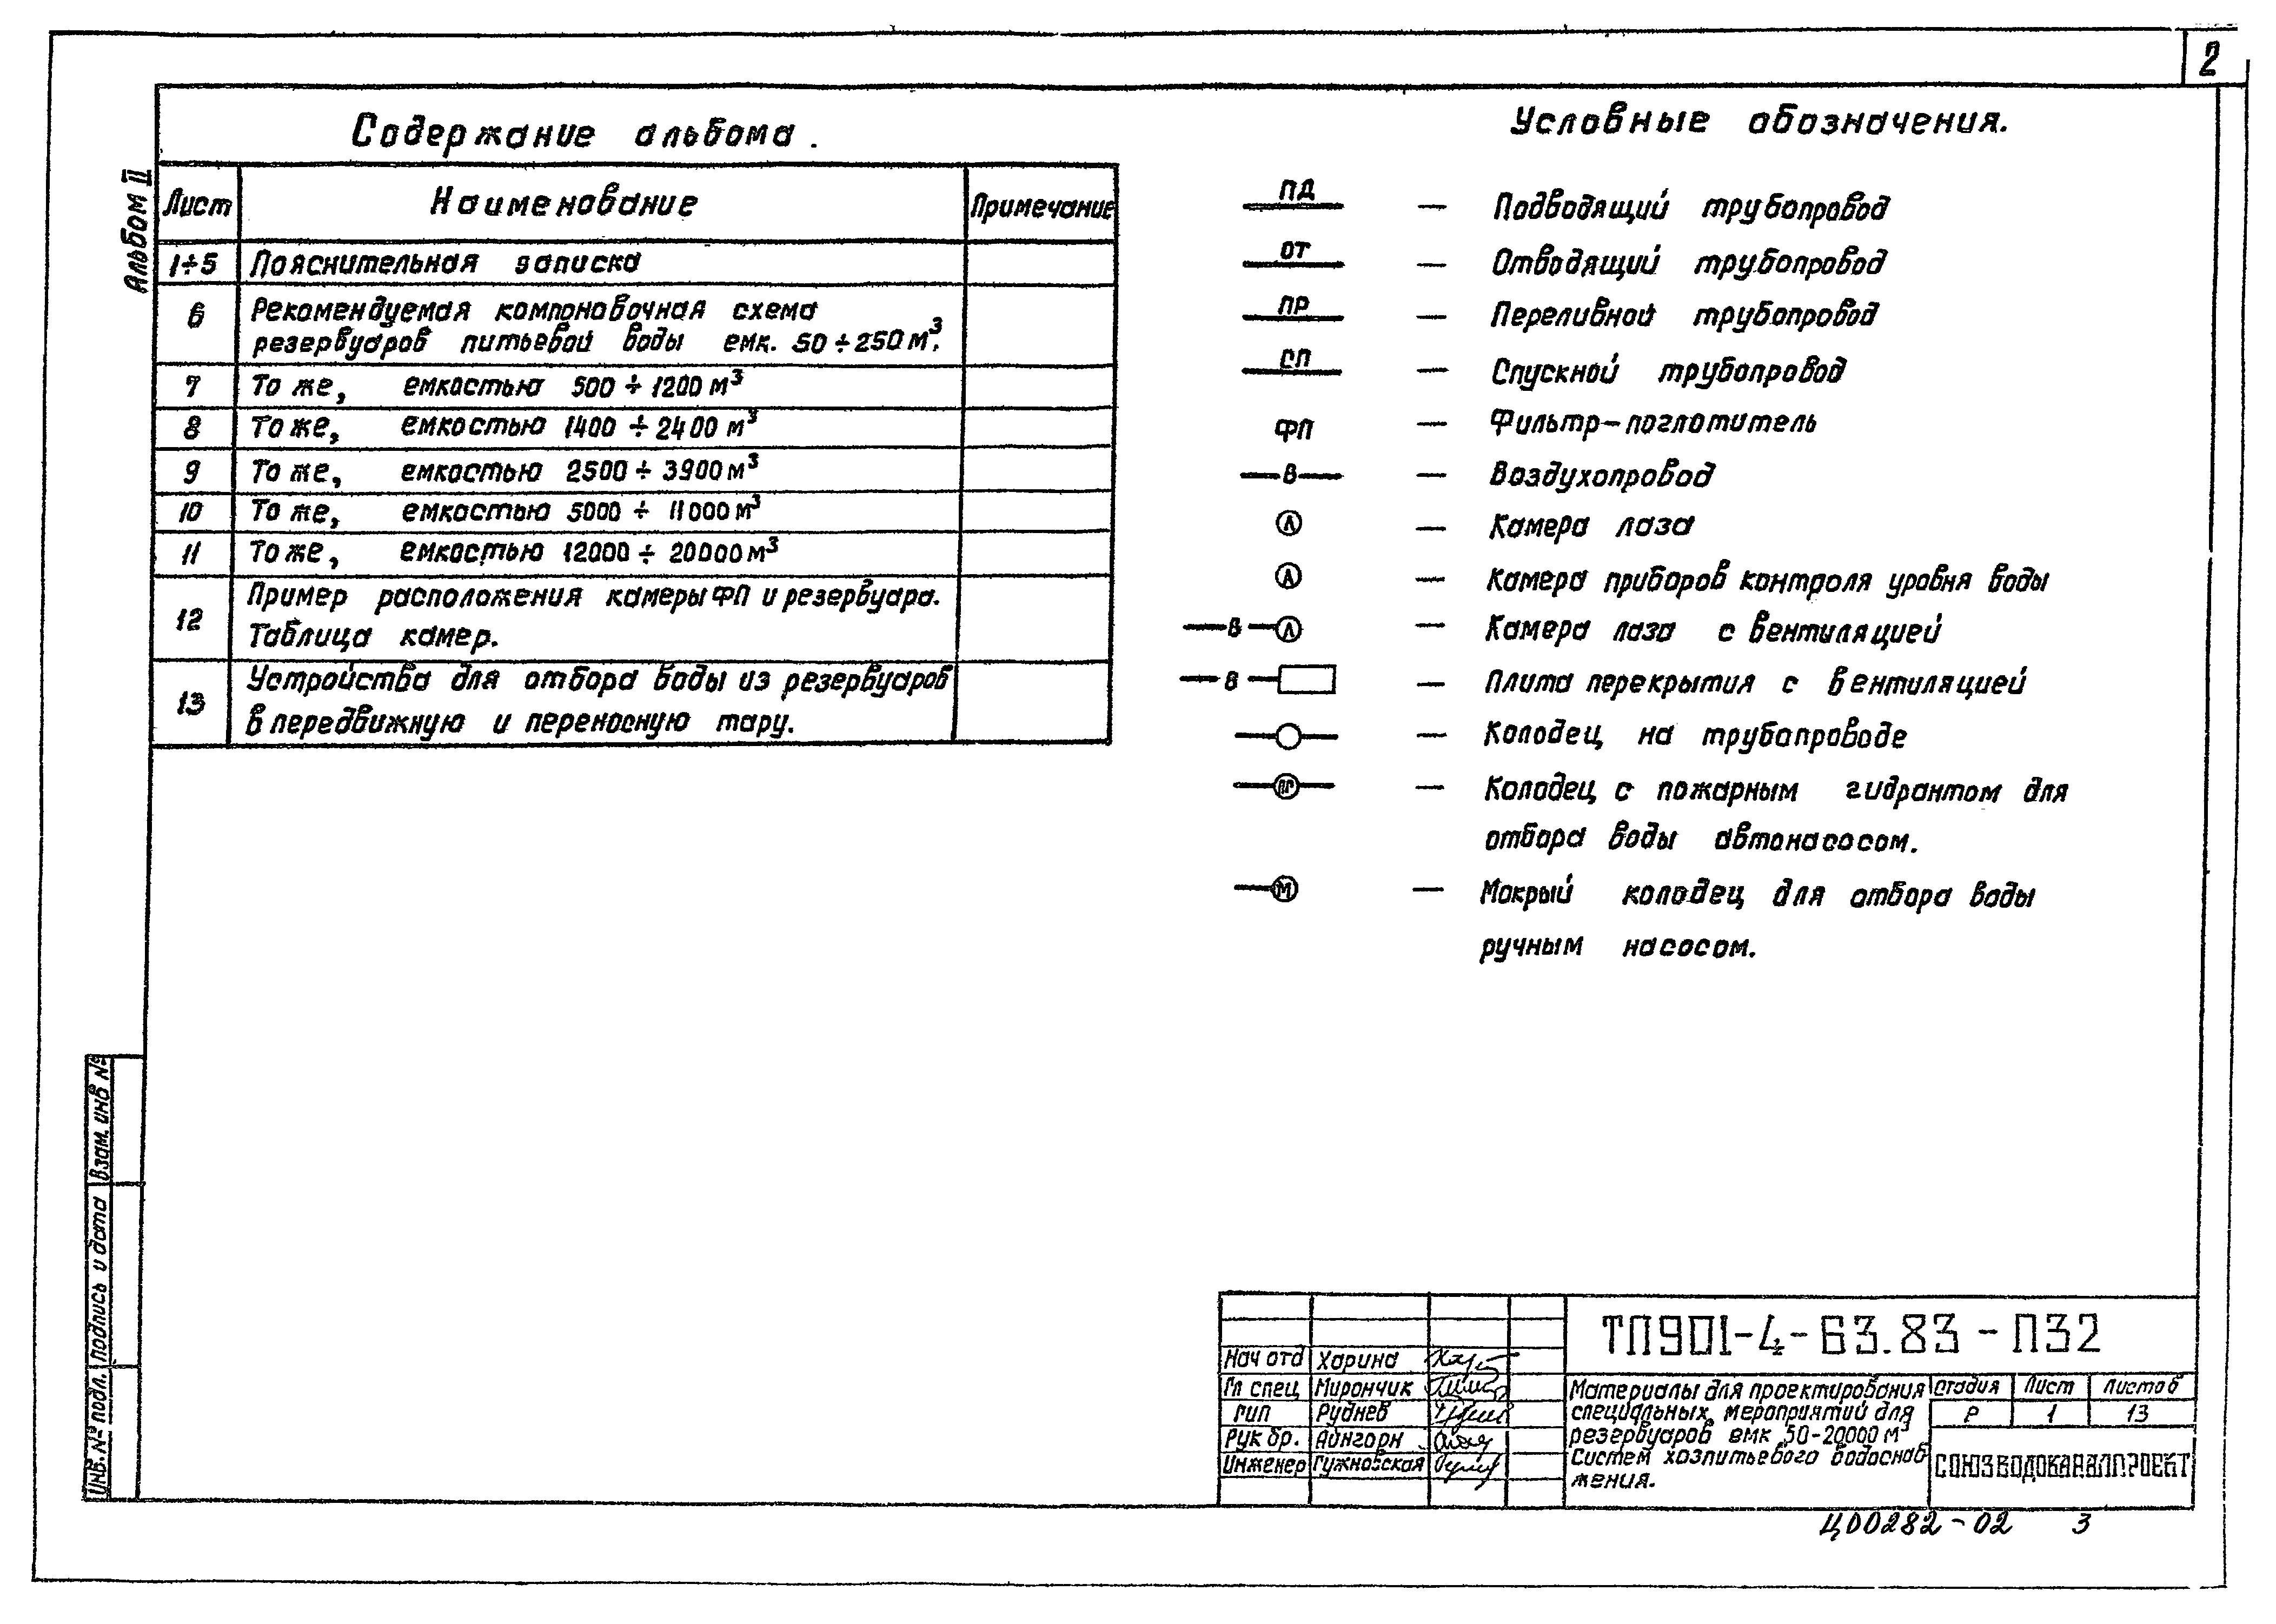 2
Альбом II
Содержание альбома.
Лист Наименование Примечание
1÷5 Пояснительная записка
6 Рекомендуемая компоновочная схема
резервуаров питьевой воды емк. 50÷250 м³.
7 То же, емкостью 500÷1200 м³
8 То же, емкостью 1400÷2400 м³
9 То же, емкостью 2500÷3900 м³
10 То же, емкостью 5000÷11000 м³
11 То же, емкостью 12000÷20000 м³
12 Пример расположения камеры ФП и резервуара.
Таблица камер.
13 Устройства для отбора воды из резервуаров
в передвижную и переносную тару.
Условные обозначения.
ПД — Подводящий трубопровод
ОТ — Отводящий трубопровод
ПР — Переливной трубопровод
СП — Спускной трубопровод
ФП — Фильтр-поглотитель
В — Воздухопровод
Л — Камера лаза
А — Камера приборов контроля уровня воды
В Л — Камера лаза с вентиляцией
В — Плита перекрытия с вентиляцией
— Колодец на трубопроводе
ПГ — Колодец с пожарным гидрантом для
отбора воды автонасосом.
М — Мокрый колодец для отбора воды
ручным насосом.
Инв. № подл. Подпись и дата Взам. инв №
Нач отд Харина
Гл спец Мирончик
ГИП Руднев
Рук бр. Айнгорн
Инженер Гужновская
ТП901-4-63.83-ПЗ2
Материалы для проектирования
специальных мероприятий для
резервуаров емк 50-20000 м³
Систем хозпитьевого водоснаб
жения.
Стадия Лист Листов
Р 1 13
СОЮЗВОДОКАНАЛПРОЕКТ
Ц00282-02 3